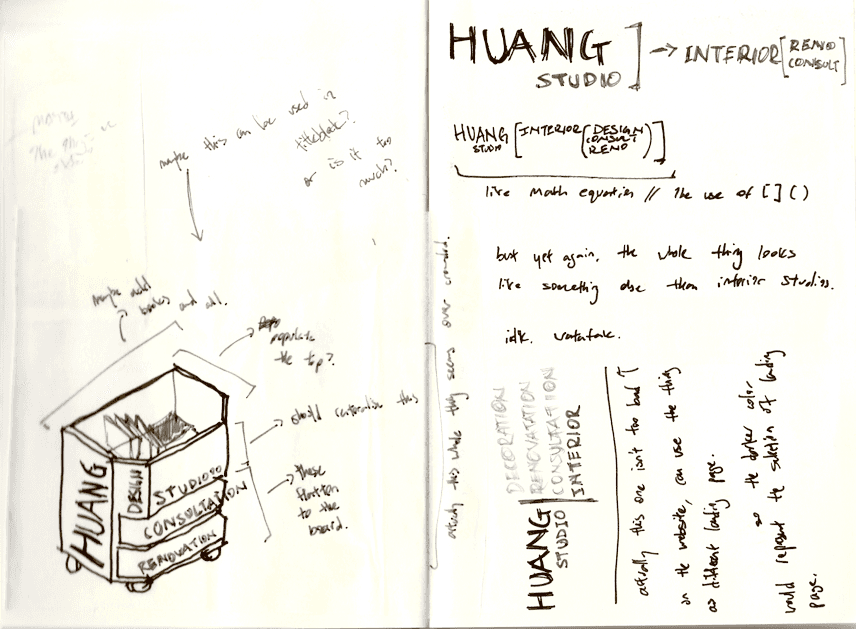 maybe this can be used in
titleblock?
or is it too
much?
maybe add
books and all.
populate
the top?
should rationalise this
these
flatten
to the
board.
HUANG
DESIGN
STUDIO
CONSULTATION
RENOVATION
HUANG
STUDIO
] → INTERIOR [
RENO
CONSULT
]
HUANG
STUDIO
[INTERIOR (
DESIGN
CONSULT
RENO
)]
like math equation // The use of [ ] ( )
but yet again, the whole thing looks
like something else than interior studios.
idk.
actually this whole thing seems over crowded.
DECORATION
RENOVATATION
CONSULTATION
INTERIOR
HUANG
STUDIO
actually this one isn't too bad ↑
on the website, can use the thing
as different landing page.
so the darker color
would represent the selection of landing
page.